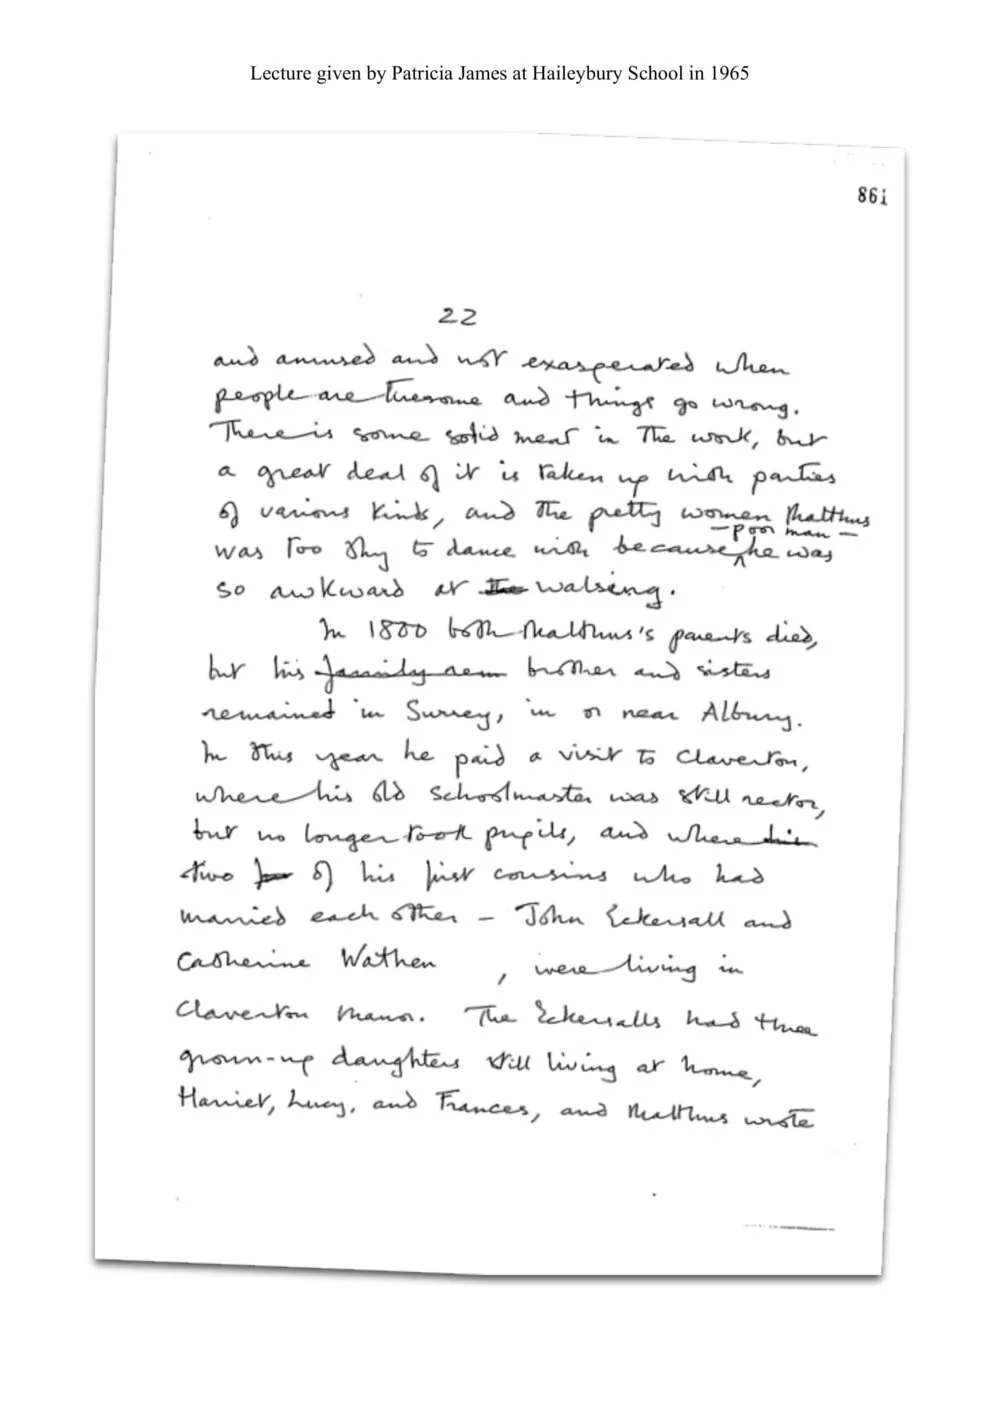 Lecture given by Patricia James at Haileybury School in 1965
861
22
and amused and not exasperated when
people are tiresome and things go wrong.
There is some solid meat in the work, but
a great deal of it is taken up with parties
of various kinds, and the pretty women Malthus
— poor man —
was too shy to dance with because he was
so awkward at the walsing.
In 1800 both Malthus's parents died,
but his family rem brother and sisters
remained in Surrey, in or near Albury.
In this year he paid a visit to Claverton,
where his old schoolmaster was still rector,
but no longer took pupils, and where his
two of his first cousins who had
married each other – John Eckersall and
Catherine Wathen , were living in
Claverton Manor. The Eckersalls had three
grown-up daughters still living at home,
Harriet, Lucy, and Frances, and Malthus wrote